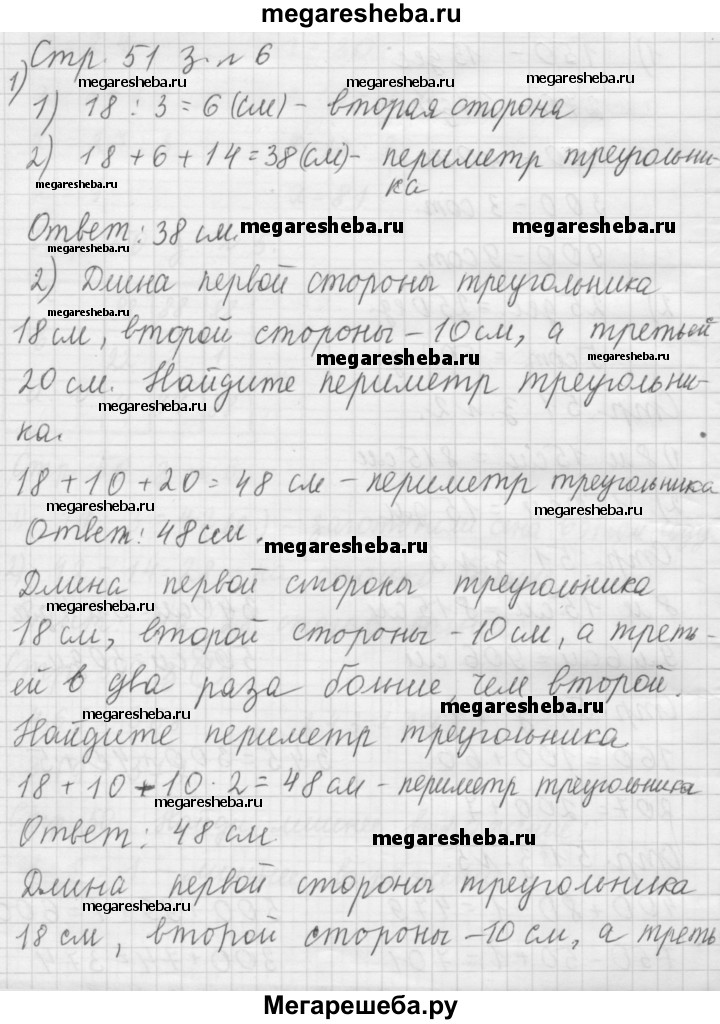 megaresheba.ru
Стр. 51 З. № 6
1)
megaresheba.ru megaresheba.ru
1) 18 : 3 = 6 (см) - вторая сторона
2) 18 + 6 + 14 = 38 (см) - периметр треугольни-
megaresheba.ru
ка
Ответ: 38 см. megaresheba.ru megaresheba.ru
megaresheba.ru
2) Длина первой стороны треугольника
megaresheba.ru
18 см, второй стороны - 10 см, а третьей
megaresheba.ru megaresheba.ru
20 см. Найдите периметр треугольни-
megaresheba.ru
ка.
18 + 10 + 20 = 48 см - периметр треугольника
megaresheba.ru
Ответ: 48 см.
megaresheba.ru
Длина первой стороны треугольника
megaresheba.ru
18 см, второй стороны - 10 см, а треть-
ей в два раза больше, чем второй.
megaresheba.ru megaresheba.ru
Найдите периметр треугольника
18 + 10 + 10 · 2 = 48 см - периметр треугольника
megaresheba.ru
Ответ: 48 см. megaresheba.ru
Длина первой стороны треугольника
megaresheba.ru
18 см, второй стороны - 10 см, а треть
Мегарешеба.ру